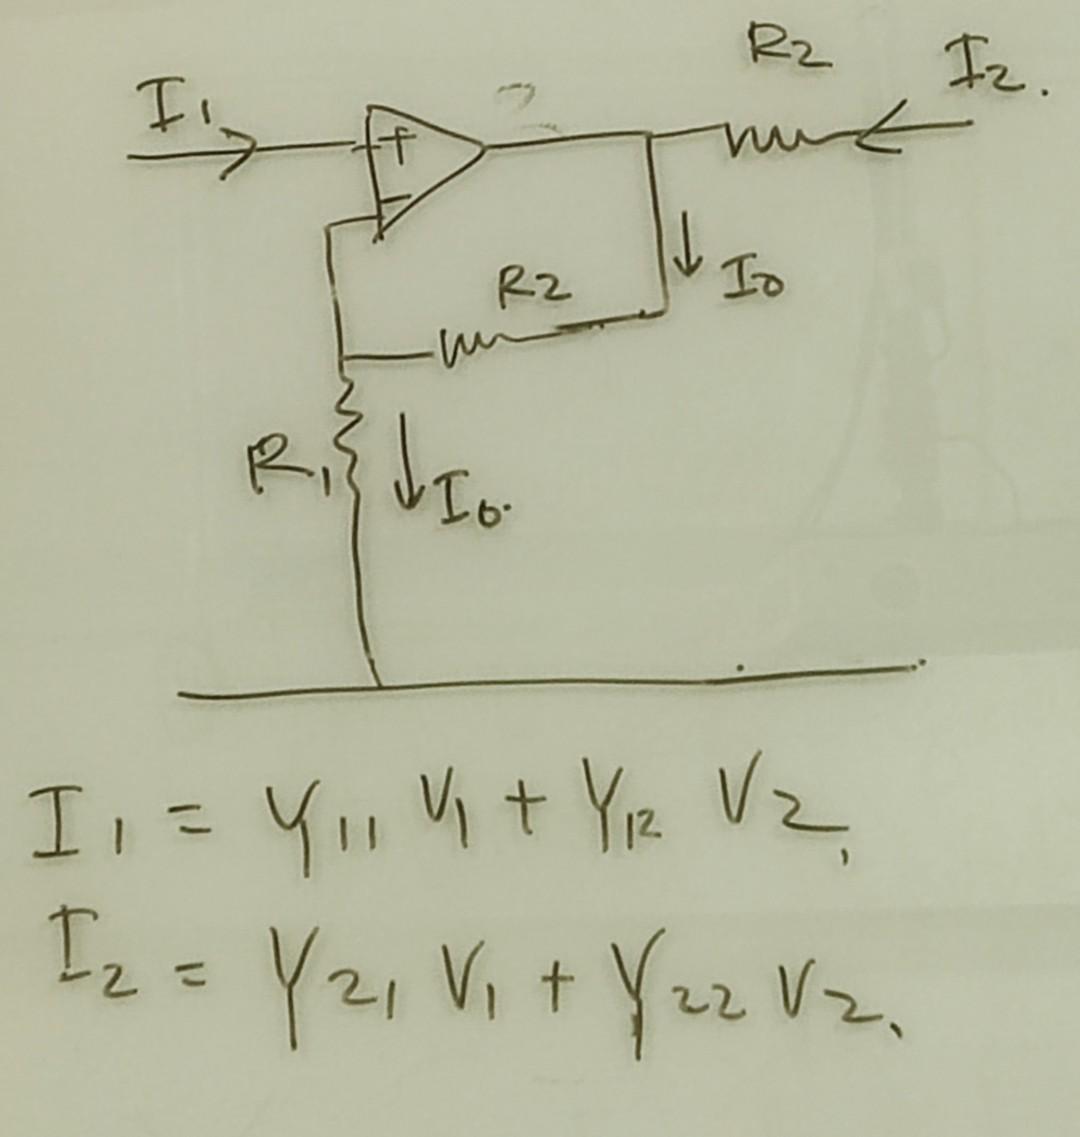 R2
I1
I2.
+
−
R2
I0
R1
I0.
I1 = Y11 V1 + Y12 V2,
I2 = Y21 V1 + Y22 V2.